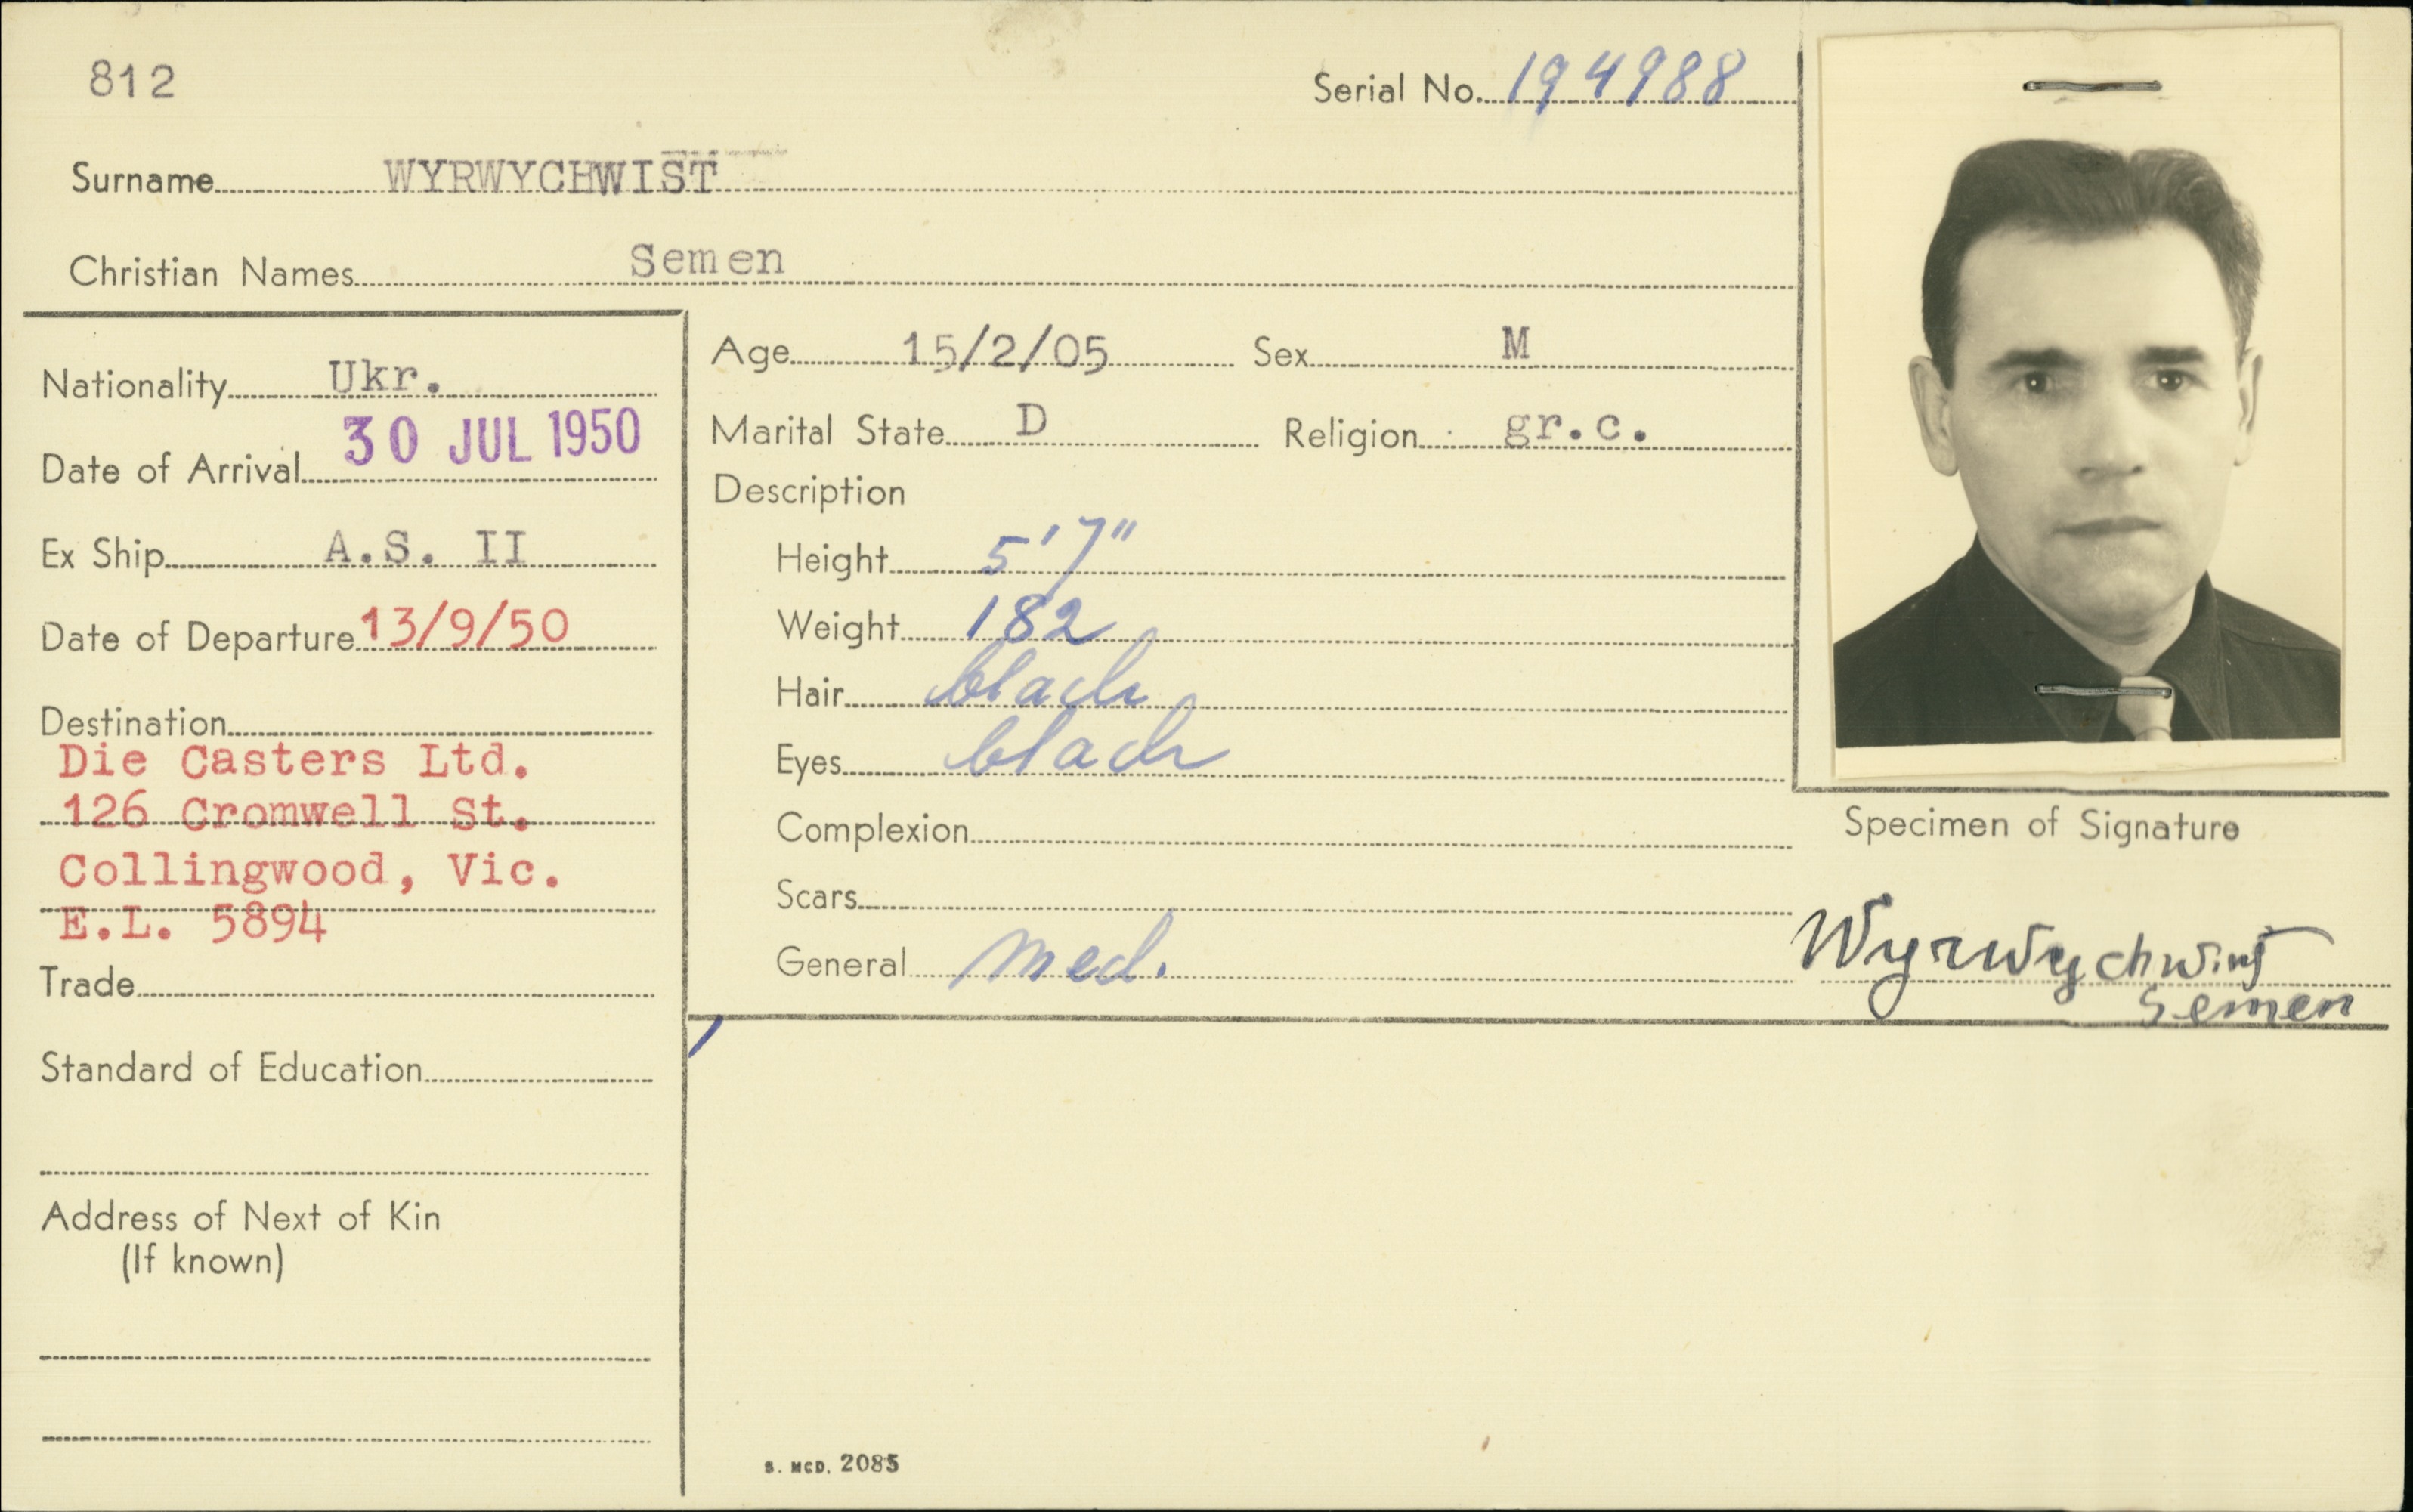 812
Serial No. 194988
Surname WYRWYCHWIST
Christian Names Semen
Nationality Ukr.
Date of Arrival 30 JUL 1950
Ex Ship A.S. II
Date of Departure 13/9/50
Destination
Die Casters Ltd.
126 Cromwell St.
Collingwood, Vic.
E.L. 5894
Trade
Standard of Education
Address of Next of Kin
(If known)
Age 15/2/05 Sex M
Marital State D Religion gr.c.
Description
Height 5'7"
Weight 182
Hair black
Eyes black
Complexion
Scars
General med.
Specimen of Signature
Wyrwychwist
Semen
S. MCD. 2085